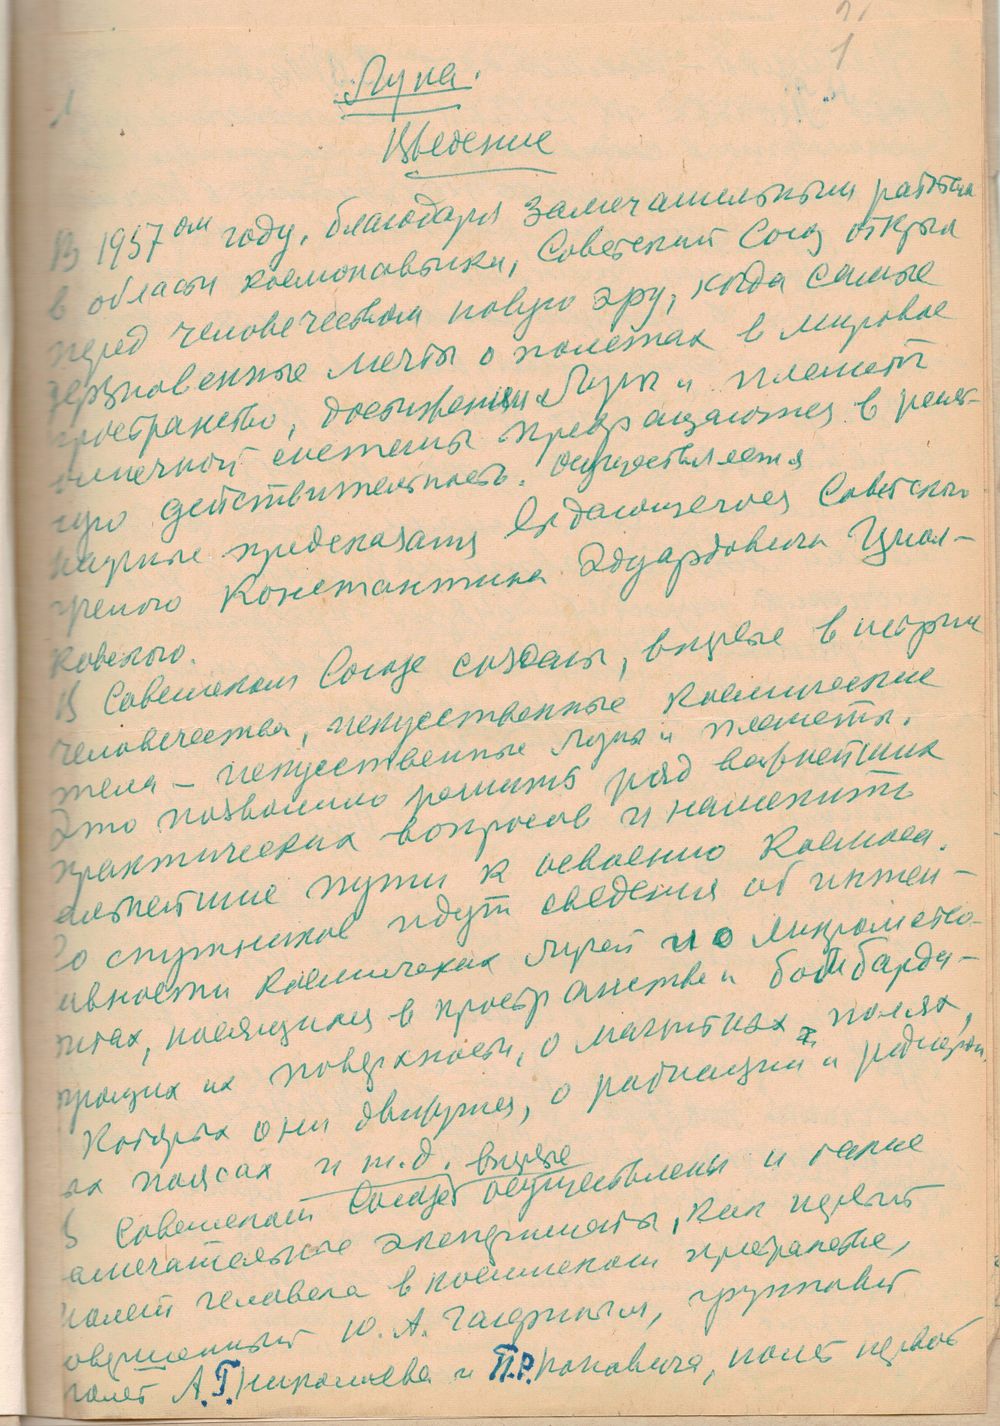 21
1
Луна.
Введение
В 1957ом году, благодаря замечательным работам
в области космонавтики, Советский Союз открыл
перед человечеством новую эру, когда самые
дерзновенные мечты о полетах в мировое
пространство, достижении Луны и планет
солнечной системы превращаются в реаль-
ную действительность. Осуществляется
научные предсказания выдающегося Советского
ученого Константина Эдуардовича Циол-
ковского.
В Советском Союзе созданы, впервые в истории
человечества, искусственные космические
тела – искусственные луны и планеты.
Это позволило решить ряд важнейших
практических вопросов и наметить
дальнейшие пути к освоению Космоса.
Со спутников идут сведения об интен-
сивности космических лучей и о микрометео-
ритах, носящихся в пространстве и бомбарди-
рующих их поверхности, о магнитных полях,
в которых они движутся, о радиации и радиацион-
ых поясах и т.д. впервые
В Советском Союзе осуществлены и такие
замечательные эксперименты, как первый
полет человека в космическом пространстве,
совершенный Ю. А. Гагариным, групповой
полет А.Г. Николаева и П.Р. Поповича, полет первой